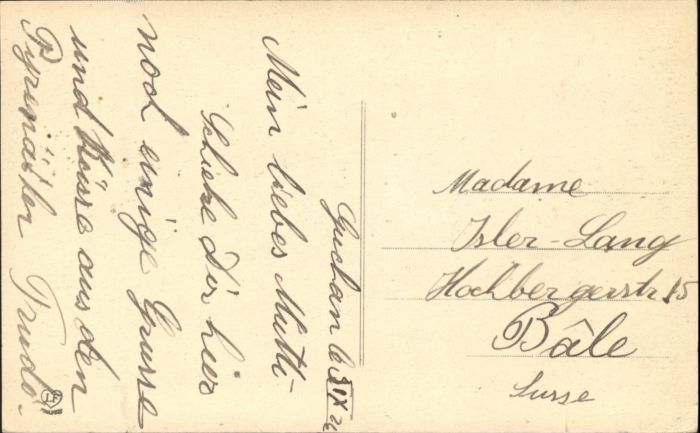 Guchan le IX 26
Mein liebes Mutti
Schicke Dir hier
noch einige Grüsse
und Küsse aus den
Pyrenäen
Trudi.
Madame
Isler-Lang
Hochbergerstr 15
Bâle
Suisse